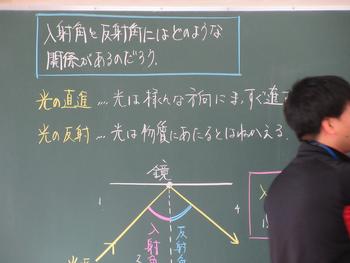 入射角と反射角にはどのような
関係があるのだろう.
光の直進 … 光は様々な方向にまっすぐ進
光の反射 … 光は物質にあたるとはねかえる.
鏡
入射角
反射角
入
光